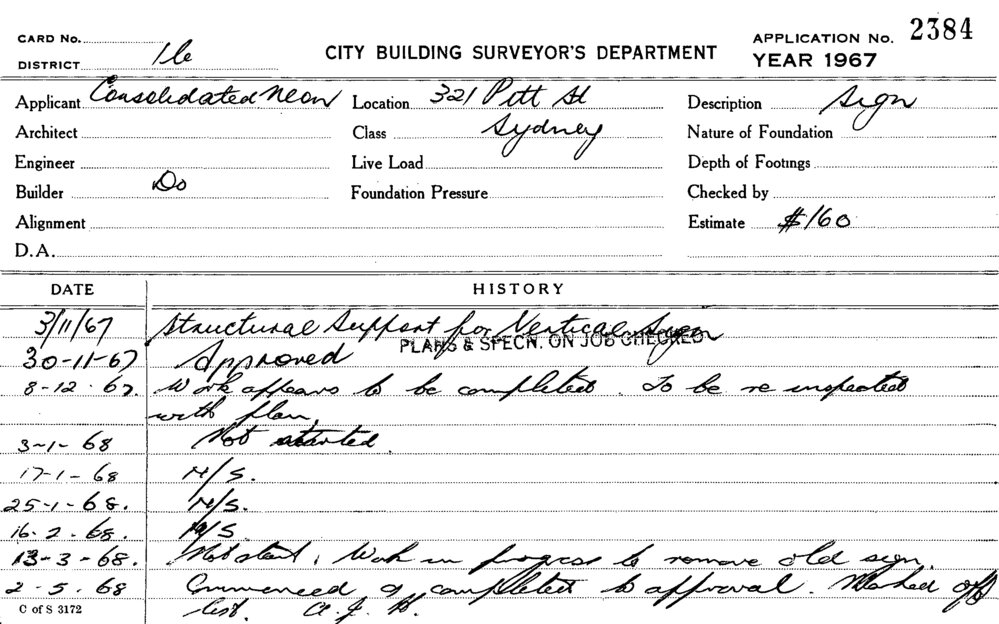 CARD No.
DISTRICT 1b
CITY BUILDING SURVEYOR'S DEPARTMENT
APPLICATION No. 2384
YEAR 1967
Applicant Consolidated Neon
Location 321 Pitt St
Description Sign
Architect
Class Sydney
Nature of Foundation
Engineer
Live Load
Depth of Footings
Builder Do
Foundation Pressure
Checked by
Alignment
Estimate $160
D.A.
DATE HISTORY
3/11/67 Structural Support for Vertical Sign
PLANS & SPECN. ON JOB CHECKED
30-11-67 Approved
8-12-67. Work appears to be completed. To be re inspected
with plan.
3-1-68 Not started.
17-1-68 N/S.
25-1-68. N/S.
16.2.68. N/S
13-3-68. Not start. Work in progress to remove old sign.
2-5.68 Commenced & completed to approval. Marked off
list. A.J.H.
C of S 3172